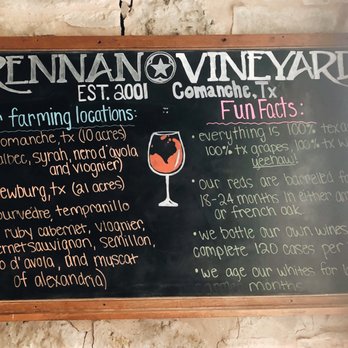 RENNAN VINEYARD
EST. 2001 Comanche, Tx
farming locations:
omanche, tx (10 acres)
albec, syrah, nero d'avola
and viognier)
ewburg, tx (21 acres)
ourvedre, tempranillo
ruby cabernet, viognier,
ernet sauvignon, semillon,
o d'avola, and muscat
of alexandria)
Fun Facts:
• everything is 100% texa
100% tx grapes, 100% tx w
yeehaw!
• our reds are barreled f
18-24 months in either am
or french oak
• we bottle our own wines
complete 120 cases per
• we age our whites for l
months